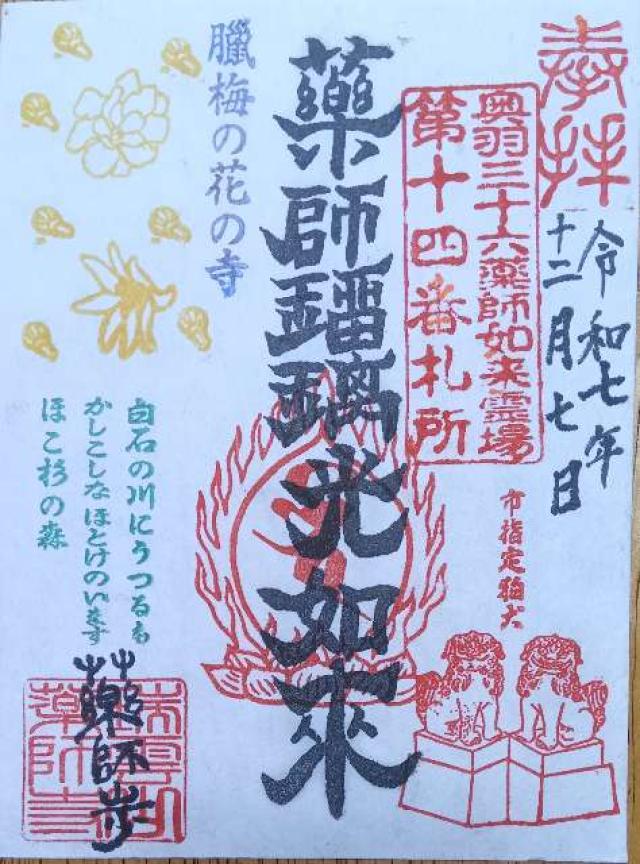 奉拝
令和七年
十二月七日
奥羽三十六薬師如来霊場
第十四番札所
市指定狛犬
藥師瑠璃光如來
臘梅の花の寺
白石の川にうつるも
かしこしなほとけのいます
ほこ杉の森